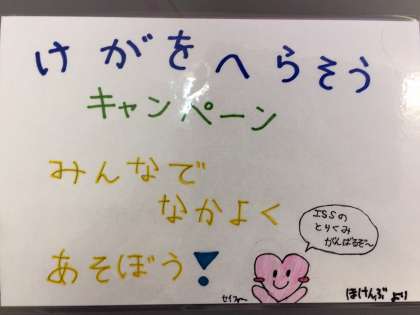 けがをへらそう
キャンペーン
みんなで
なかよく
あそぼう!
ISSの
とりくみ
がんばるぞ〜
セイフィー
ほけんぶより